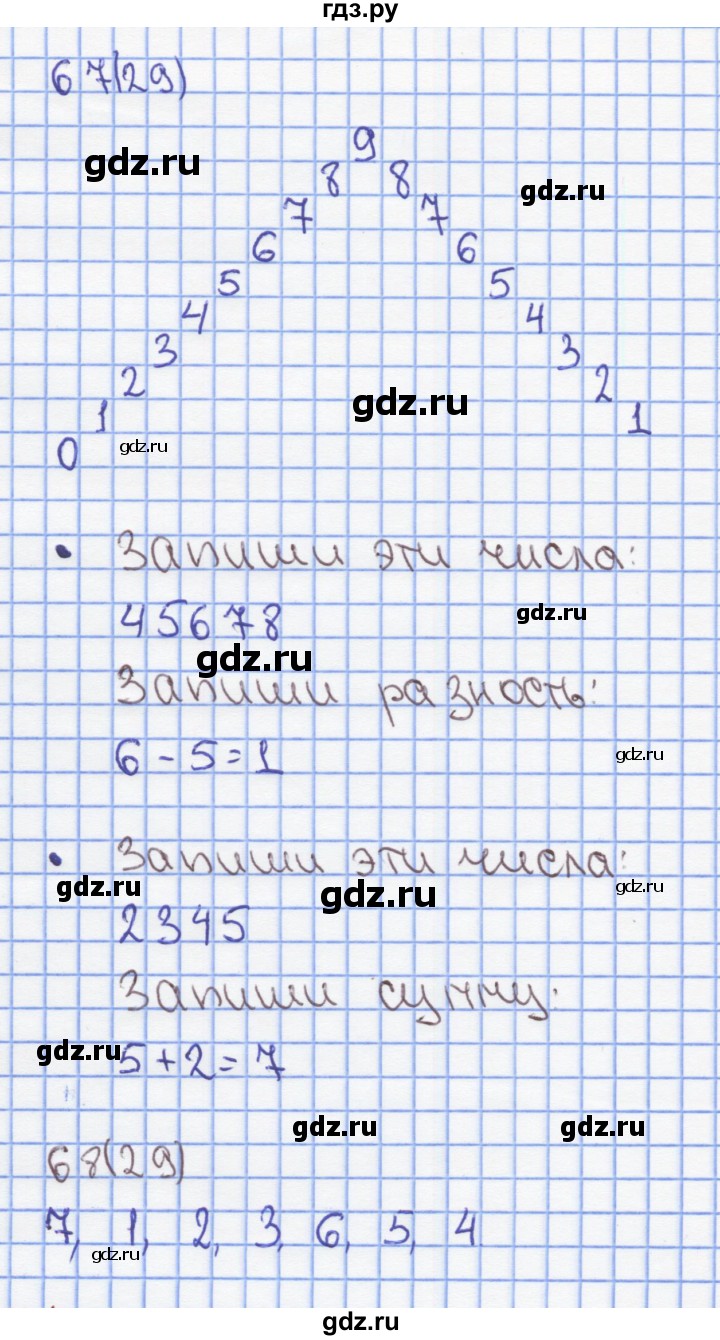 гдз.ру
67(29)
gdz.ru
gdz.ru
9
8 8
7 7
6 6
5 5
4 4
3 3
2 2
gdz.ru
1 1
0
gdz.ru
Запиши эти числа:
45678
gdz.ru
gdz.ru
Запиши разность:
6-5=1
gdz.ru
Запиши эти числа:
gdz.ru
gdz.ru
gdz.ru
2345
Запиши сумму:
gdz.ru
5+2=7
gdz.ru
gdz.ru
68(29)
7, 1, 2, 3, 6, 5, 4
gdz.ru
gdz.ru